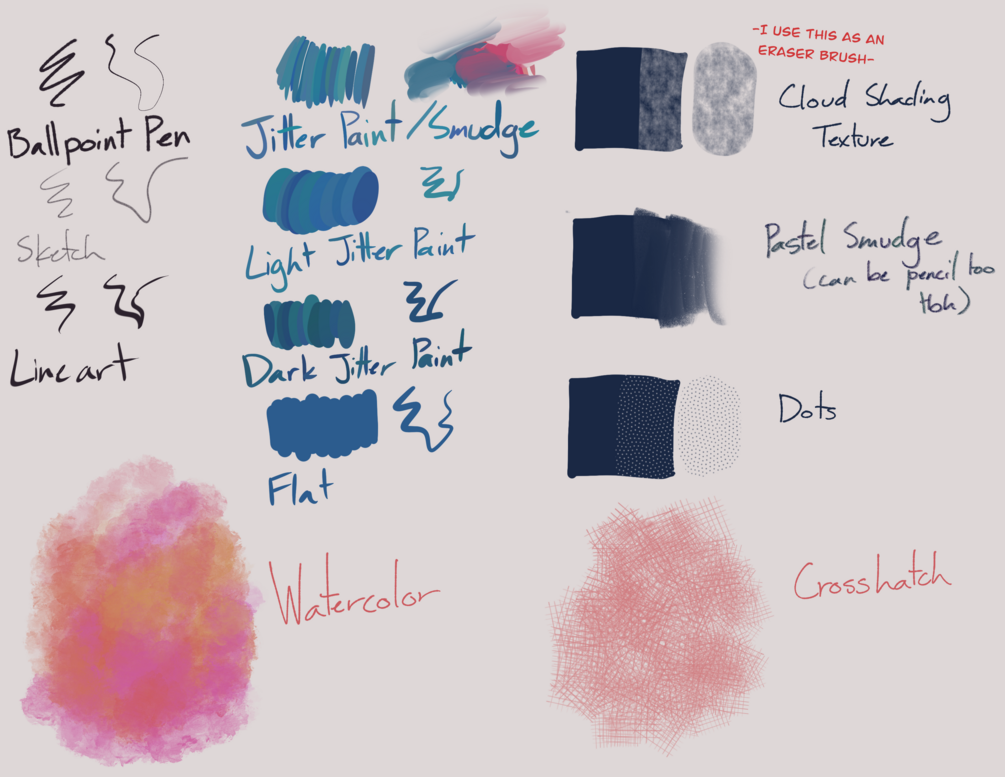 Ballpoint Pen
Sketch
Lineart
Jitter Paint/Smudge
Light Jitter Paint
Dark Jitter Paint
Flat
-I USE THIS AS AN
ERASER BRUSH-
Cloud Shading
Texture
Pastel Smudge
(can be pencil too
tbh)
Dots
Watercolor
Crosshatch